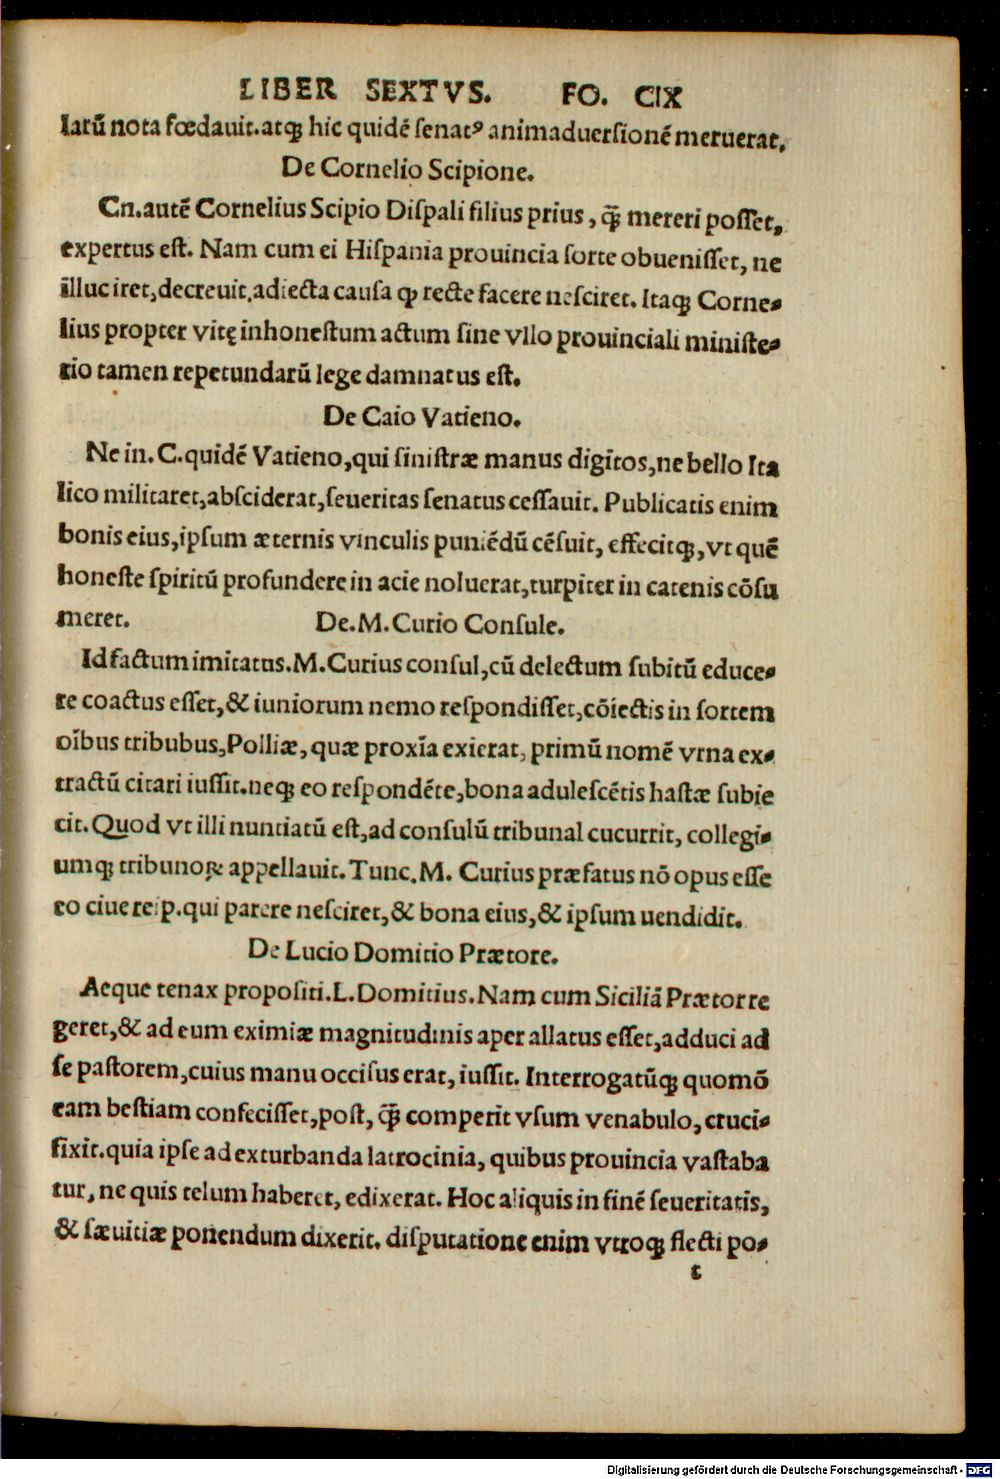 LIBER SEXTVS. FO. CIX
larũ nota fœdauit.atqꝫ hic quidẽ ſenatꝰ animaduerſionẽ meruerat.
De Cornelio Scipione.
Cn.autẽ Cornelius Scipio Diſpali filius prius, q̃ꝫ mereri poſſet,
expertus eſt. Nam cum ei Hiſpania prouincia ſorte obueniſſet, ne
illuc iret,decreuit,adiecta cauſa ꝙ recte facere neſciret. Itaqꝫ Corne⸗
lius propter vitę inhoneſtum actum ſine vllo prouinciali miniſte⸗
rio tamen repetundarũ lege damnatus eſt.
De Caio Vatieno.
Ne in. C.quidẽ Vatieno,qui ſiniſtræ manus digitos,ne bello Ita
lico militaret,abſciderat,ſeueritas ſenatus ceſſauit. Publicatis enim
bonis eius,ipſum æternis vinculis puniẽdũ cẽſuit, effecitqꝫ,vt quẽ
honeſte ſpiritũ profundere in acie noluerat,turpiter in catenis cõſu
meret. De.M.Curio Conſule.
Id factum imitatus.M.Curius conſul,cũ delectum ſubitũ educe⸗
re coactus eſſet,& iuniorum nemo reſpondiſſet,cõiectis in ſortem
oĩbus tribubus,Polliæ, quæ proxĩa exierat, primũ nomẽ vrna ex⸗
tractũ citari iuſſit.neqꝫ eo reſpondẽte,bona aduleſcẽtis haſtæ ſubie
cit. Quod vt illi nuntiatũ eſt,ad conſulũ tribunal cucurrit, collegi⸗
umqꝫ tribunoꝝ appellauit. Tunc.M. Curius præfatus nõ opus eſſe
eo ciue reip.qui parere neſciret,& bona eius,& ipſum uendidit.
De Lucio Domitio Prætore.
Aeque tenax propoſiti.L.Domitius.Nam cum Siciliã Prætor re
geret,& ad eum eximiæ magnitudinis aper allatus eſſet,adduci ad
ſe paſtorem,cuius manu occiſus erat, iuſſit. Interrogatũqꝫ quomõ
eam beſtiam confeciſſet,poſt, q̃ꝫ comperit vſum venabulo, cruci⸗
fixit.quia ipſe ad exturbanda latrocinia, quibus prouincia vaſtaba
tur, ne quis telum haberet, edixerat. Hoc aliquis in finẽ ſeueritatis,
& ſæuitiæ ponendum dixerit. diſputatione enim vtroqꝫ flecti po⸗
t
Digitalisierung gefördert durch die Deutsche Forschungsgemeinschaft - DFG